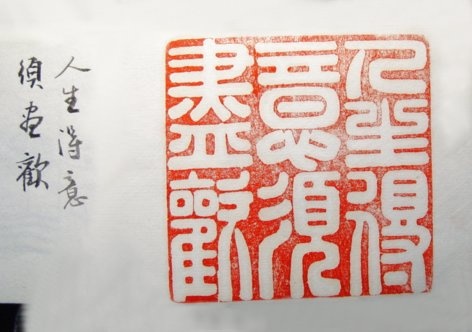 人生得
意須
盡歡
人生得意
須盡歡